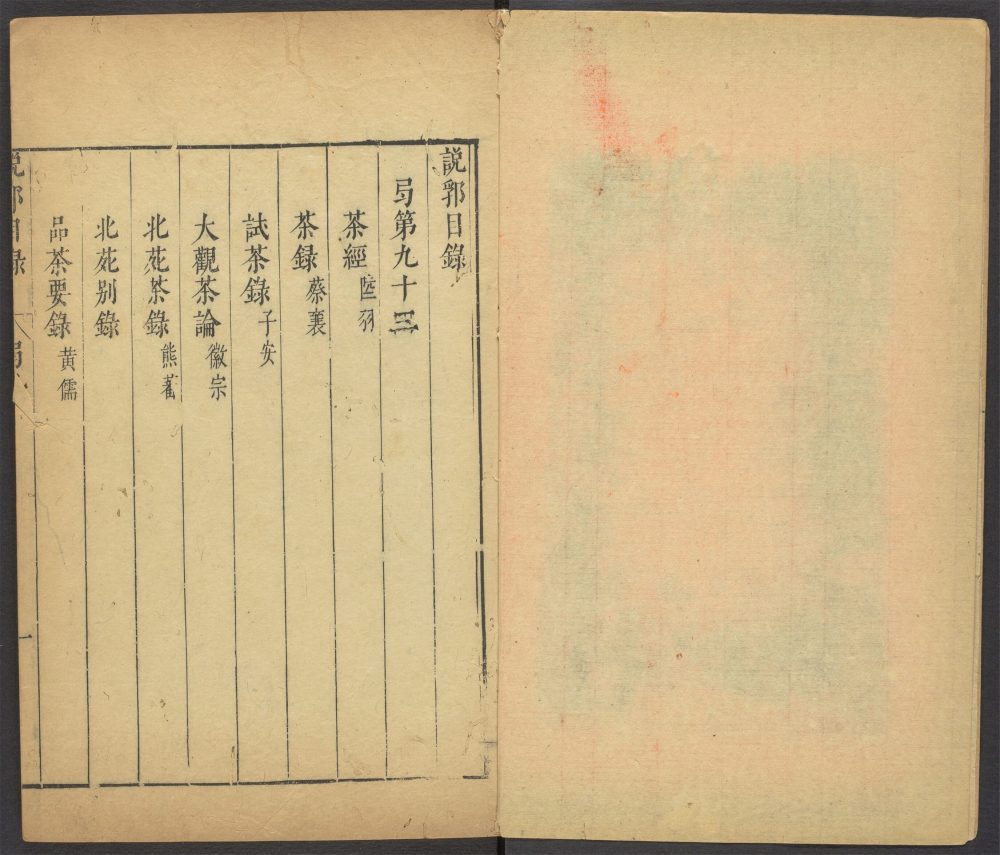 說郛目錄
弓第九十三
茶經 陸羽
茶録 蔡襄
試茶錄 子安
大觀茶論 徽宗
北苑茶錄 熊蕃
北苑别錄
品茶要錄 黄儒
説郛目録
一